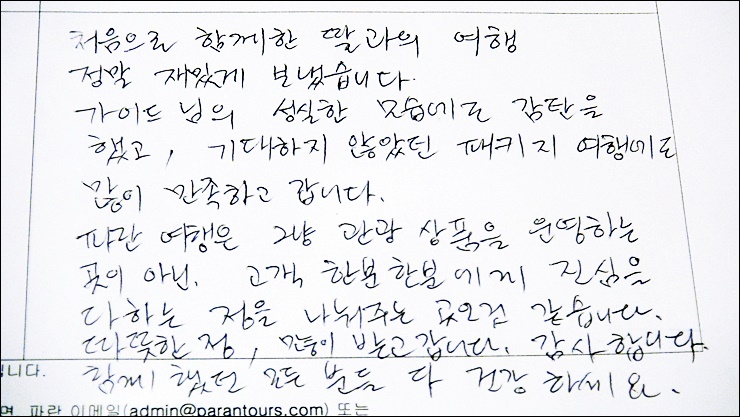 처음으로 함께한 딸과의 여행
정말 재있게 보냈습니다.
가이드님의 성실한 모습에도 감탄을
했고, 기대하지 않았던 패키지 여행에도
많이 만족하고 갑니다.
파란 여행은 그냥 관광 상품을 운영하는
곳이 아닌. 고객 한분한분에게 진심을
다하는 정을 나눠주는 곳으로 같습니다.
따뜻한 정, 많이 받고갑니다. 감사합니다.
니다.
함께 했던 모든 분들 다 건강하세요.
면 파란 이메일(admin@parantours.com) 또는